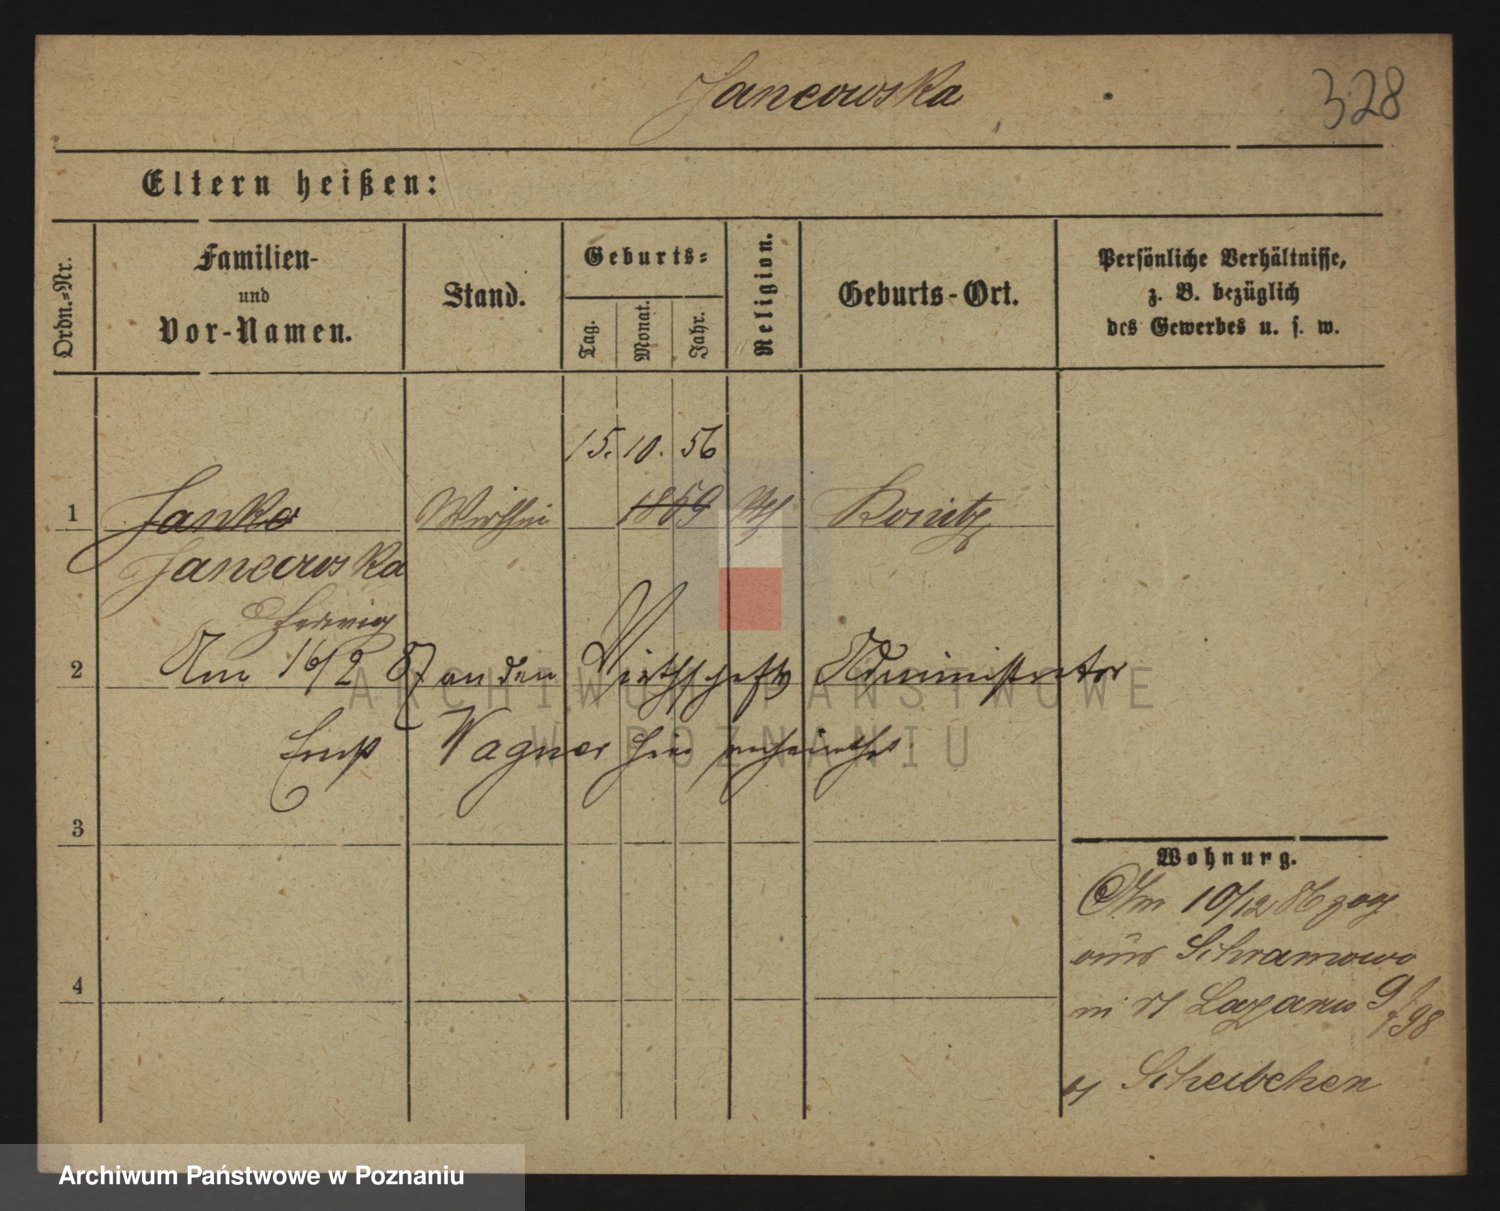 Jancowska
328
Eltern heißen:
Ordn.=Nr.
Familien-
und
Vor-Namen.
Stand.
Geburts=
Tag.
Monat.
Jahr.
Religion.
Geburts-Ort.
Persönliche Verhältnisse,
z. B. bezüglich
des Gewerbes u. s. w.
15. 10. 56
1 Janke Wirthin 1859 Konitz
Jancowska
Hedwig
2 Am 16/2 87 an den Wirthschafts Administrator
Ernst Wagner hier verheirathet
3
Wohnung.
Am 10/12 86 zog
aus Schramowo
in St Lazarus 9
/98
4
Scheibchen
ARCHIWUM PAŃSTWOWE
W POZNANIU
Archiwum Państwowe w Poznaniu